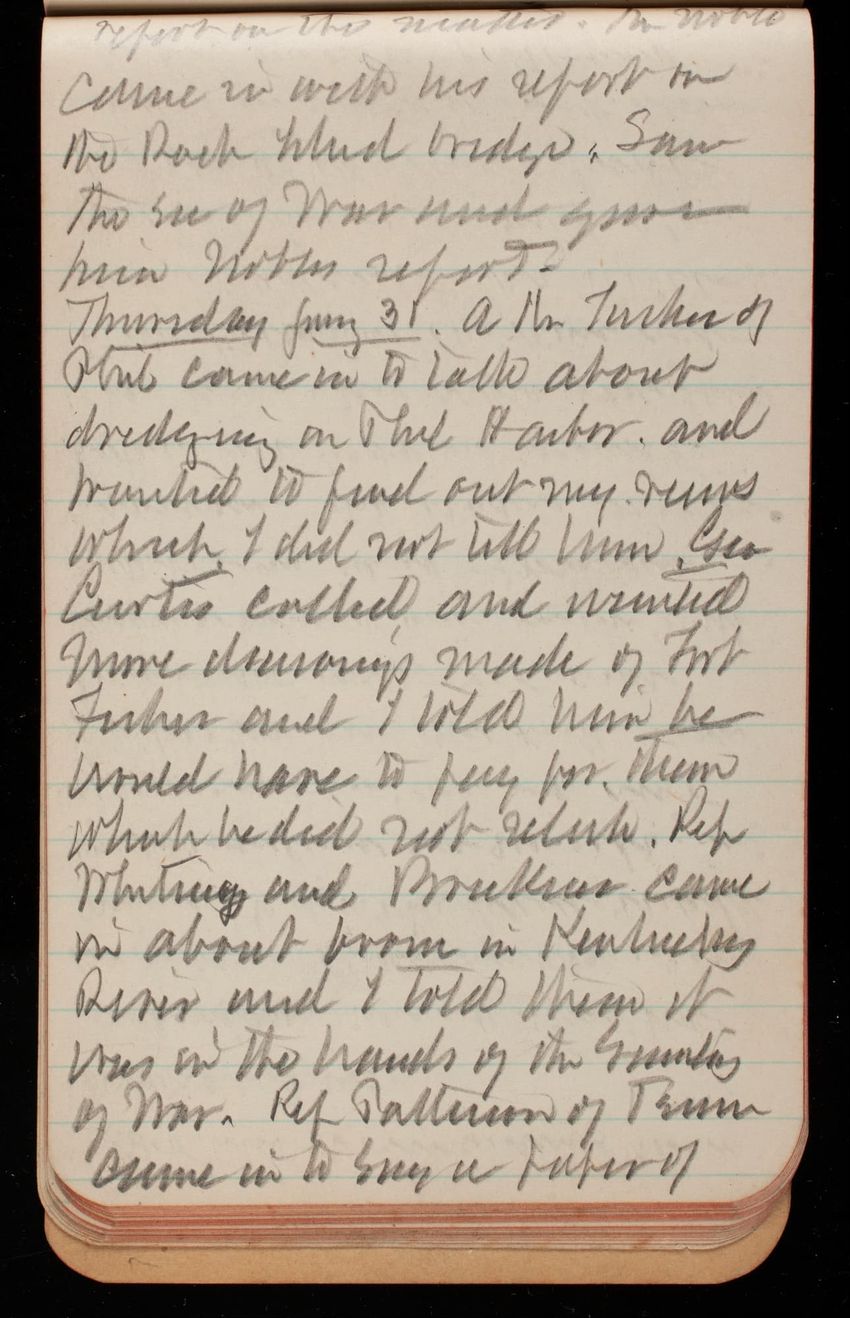 report on this matter. Mr Noble
came in with his report on
the Rock Island bridge. Saw
the Sec of War and gave
him Nobles report.
Thursday Jany 31. A Mr Tucker of
Phil came in to talk about
dredging on Phil Harbor. and
wanted to find out my views
which I did not tell him. Geo
Curtis called and wanted
more drawings made of Fort
Fisher and I told him he
would have to pay for them
which he did not relish. Rep
Whiting and came
in about boom in Kentucky
River and I told them it
was in the hands of the Secretary
of War. Rep Patterson of Tenn
came in to say a paper of